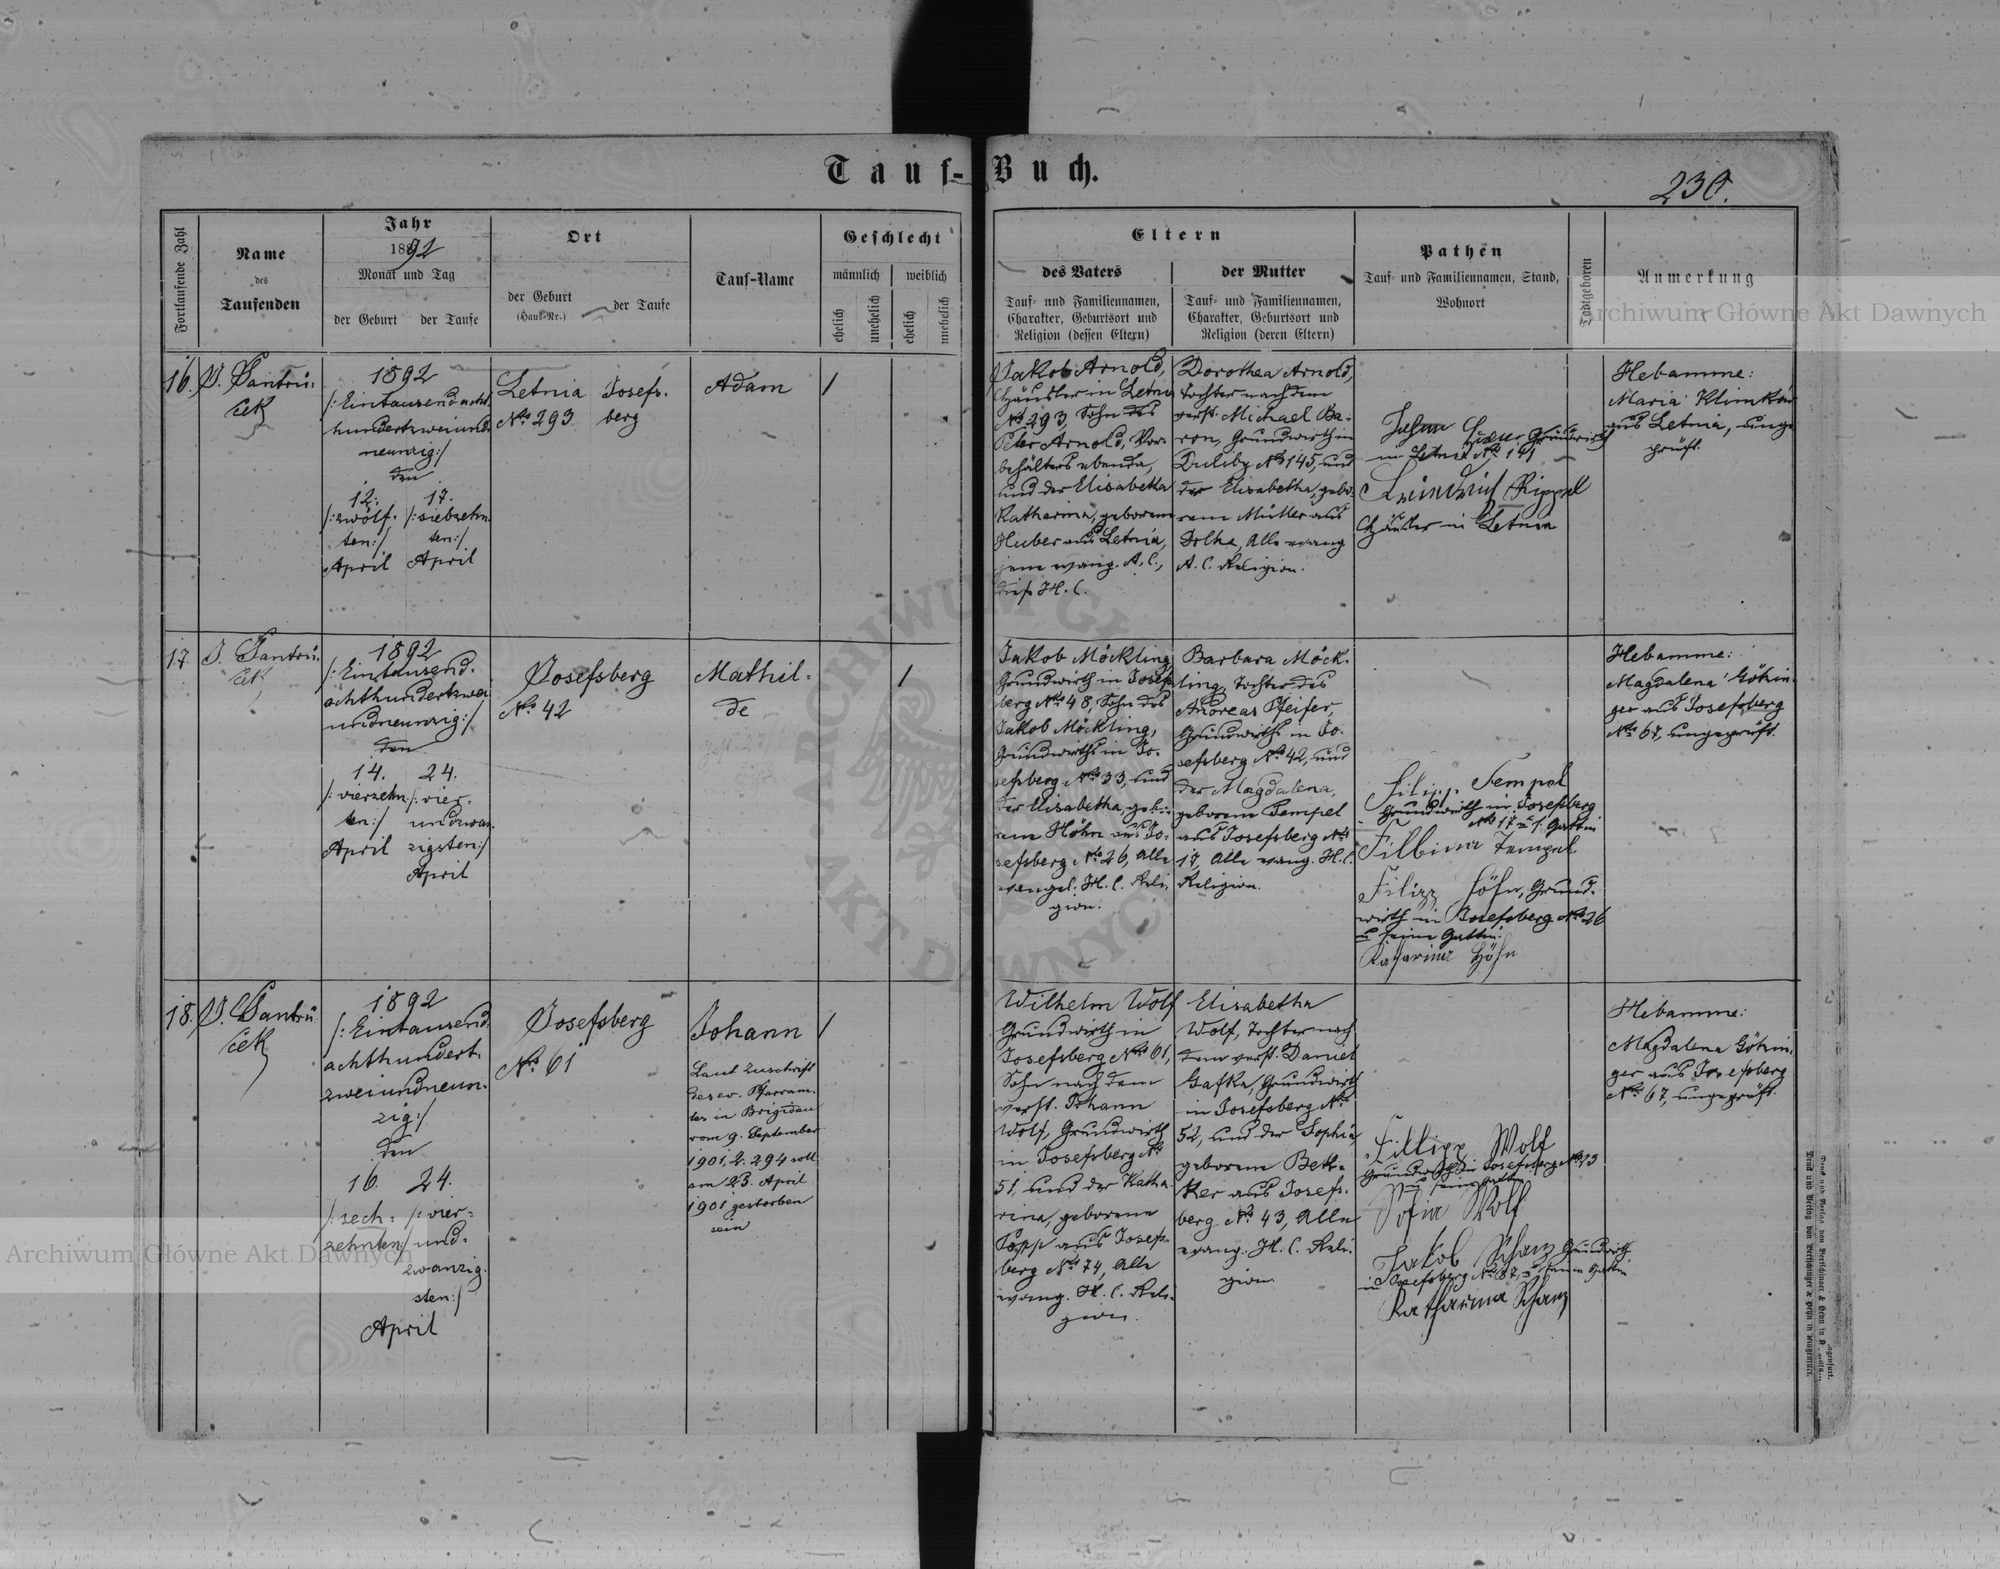 Tauf-Buch.
230.
Fortlaufende Zahl
Name
des
Taufenden
Jahr
1892
Monat und Tag
der Geburt
der Taufe
Ort
der Geburt
(Haus-Nr.)
der Taufe
Tauf-Name
Geschlecht
männlich
weiblich
ehelich
unehelich
ehelich
unehelich
Eltern
des Vaters
Tauf- und Familiennamen,
Charakter, Geburtsort und
Religion (dessen Eltern)
der Mutter
Tauf- und Familiennamen,
Charakter, Geburtsort und
Religion (deren Eltern)
Pathen
Tauf- und Familiennamen, Stand,
Wohnort
Todtgeboren
Anmerkung
16.
J. Jantrů-
ček
1892
/: Eintausendacht-
hundertzweiund-
neunzig:/
den
12.
/: zwölf-
ten:/
April
17.
/: siebzehn-
ten:/
April
Letnia
No 293
Josefs-
berg
Adam
/
Jakob Arnold,
Häusler in Letnia
No 293, Sohn des
Peter Arnold, Vor-
behälters ebenda,
und der Elisabetha
Katharina, geborenen
Huber aus Letnia,
jene evang. A. C.,
diese H. C.
Dorothea Arnold,
Tochter nach dem
verst. Michael Ba-
ron, Grundwirth in
Duliby No 145, und
der Elisabetha, gebo-
renen Müller aus
Alle evang.
A. C. Religion.
Johann Huber Grundwirth
in Letnia No 141
Friedrich Rippel
Häusler in Letnia
Hebamme:
Maria
aus Letnia, unge-
prüft.
17.
J. Jantrů-
ček
1892
/: Eintausend-
achthundertzwei-
undneunzig:/
den
14.
/: vierzehn-
ten:/
April
24.
/: vier-
undzwan-
zigsten:/
April
Josefsberg
No 42
Mathil-
de
/
Jakob Möckling,
Grundwirth in Josefs-
berg No 48, Sohn des
Jakob Möckling,
Grundwirths in Jo-
sefsberg No 33, und
der Elisabetha, gebo-
renen Höhn aus Jo-
sefsberg No 26, Alle
evangel. H. C. Reli-
gion.
Barbara Möck-
ling, Tochter des
Andreas Pfeifer,
Grundwirths in Jo-
sefsberg No 42, und
der Magdalena,
geborenen Tempel
aus Josefsberg No
17, Alle evang. H. C.
Religion.
Filipp Tempel
Grundwirth in Josefsberg
No 17 u. s. Gattin
Filbina Tempel
Filipp Höhn, Grund-
wirth in Josefsberg No 26
u. seine Gattin
Katharina Höhn
Hebamme:
Magdalena Göhrin-
ger aus Josefsberg
No 67, ungeprüft.
18.
J. Jantrů-
ček
1892
/: Eintausend-
achthundert-
zweiundneun-
zig:/
den
16.
/: sech-
zehnten:/
24.
/: vier-
und-
zwanzig-
sten:/
April
Josefsberg
No 61
Johann
Laut Zuschrift
des ev. Pfarram-
tes in Brigidau
vom 9. September
1901, Z. 294 soll
am 23. April
1901 gestorben
sein
/
Wilhelm Wolf
Grundwirth in
Josefsberg No 61,
Sohn nach dem
verst. Johann
Wolf, Grundwirth
in Josefsberg No
51, und der Katha-
rina, geborene
Popp aus Josefs-
berg No 74, Alle
evang. H. C. Reli-
gion.
Elisabetha
Wolf, Tochter nach
dem verst. Daniel
Gafka, Grundwirth
in Josefsberg No
52, und der Sophia,
geborenen Bek-
ker aus Josefs-
berg No 43, Alle
evang. H. C. Reli-
gion.
Fillipp Wolf
Grundwirth in Josefsberg No 25
u. seine Gattin
Sofia Wolf
Jakob Schanz Grundwirth
in Josefsberg No 87, u. seine Gattin
Katharina Schanz
Hebamme:
Magdalena Göhrin-
ger aus Josefsberg
No 67, ungeprüft.
Archiwum Główne Akt Dawnych
Archiwum Główne Akt Dawnych